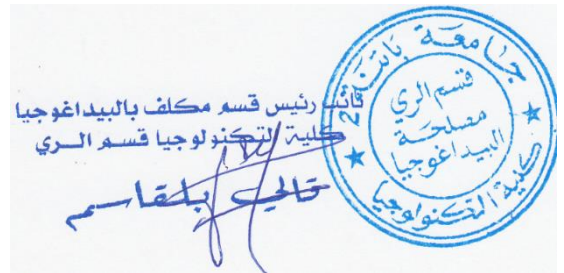 نائب رئيس قسم مكلف بالبيداغوجيا
كلية التكنولوجيا قسم الري
قالي بلقاسم
جامعة باتنة 2
قسم الري
مصلحة
البيداغوجيا
كلية التكنولوجيا